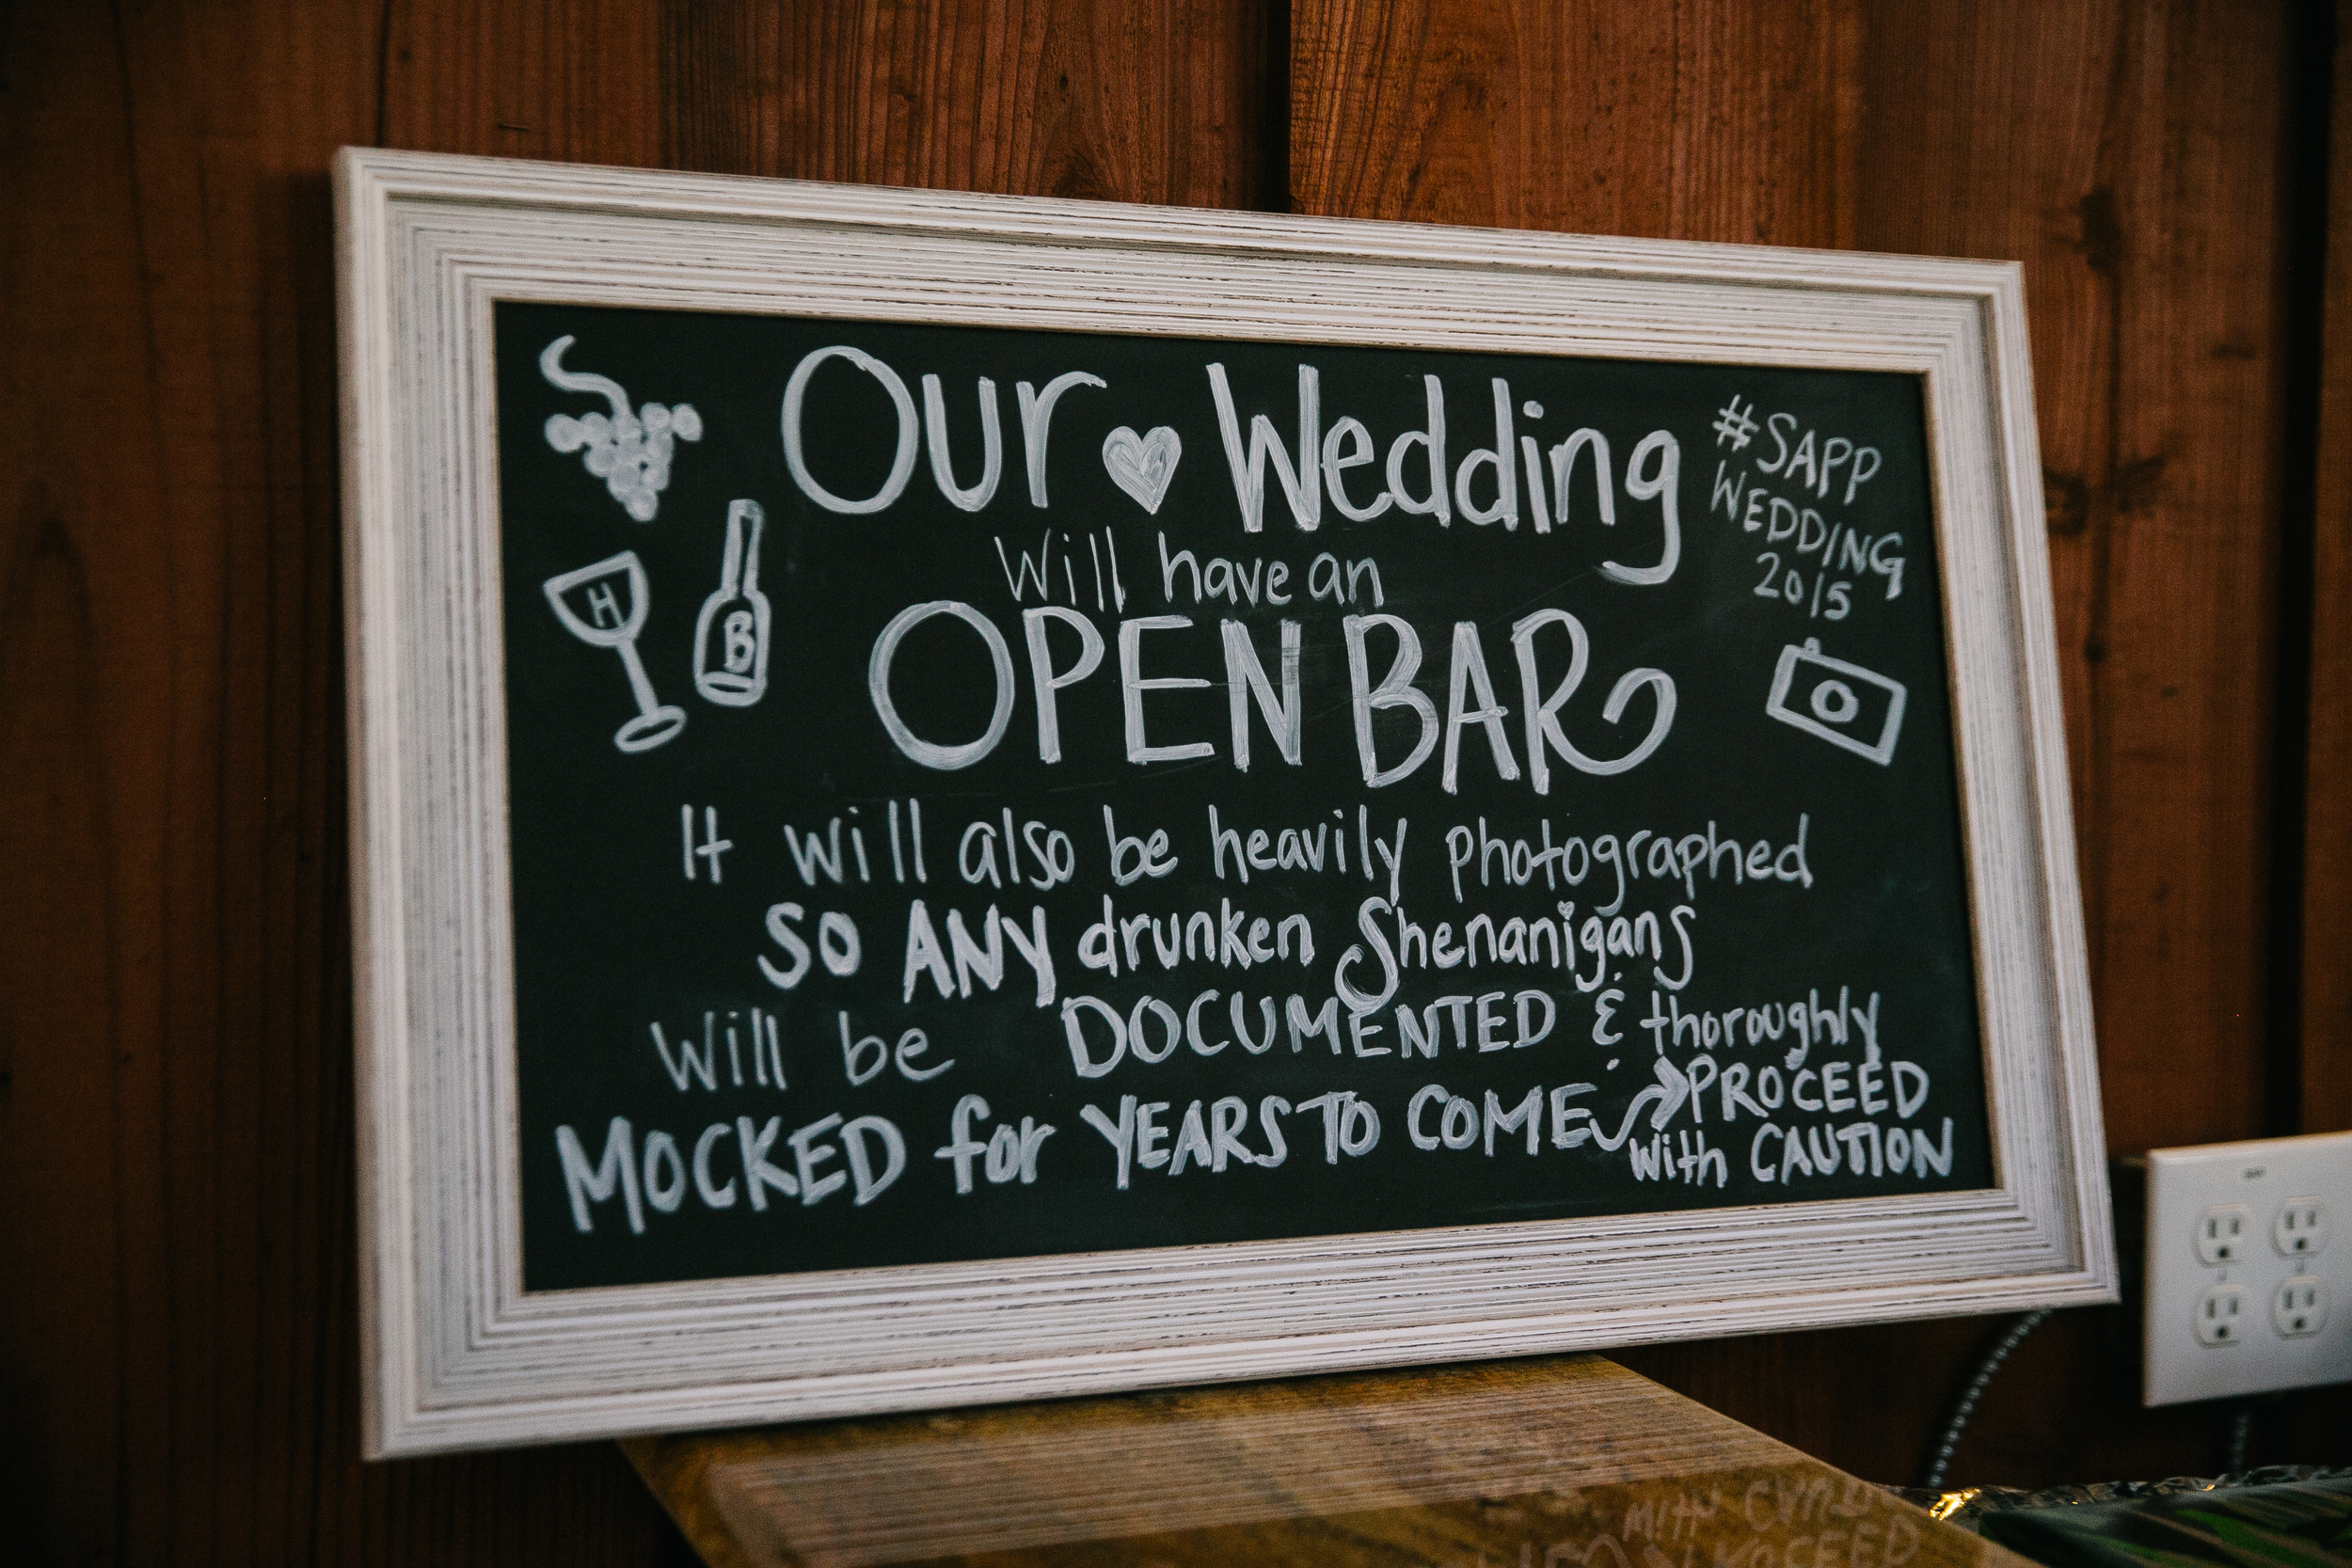 Our ♥ Wedding
#SAPP
WEDDING
2015
Will have an
H
B
OPEN BAR
It will also be heavily photographed
SO ANY drunken Shenanigans
Will be DOCUMENTED & thoroughly
MOCKED for YEARS TO COME → PROCEED
with CAUTION